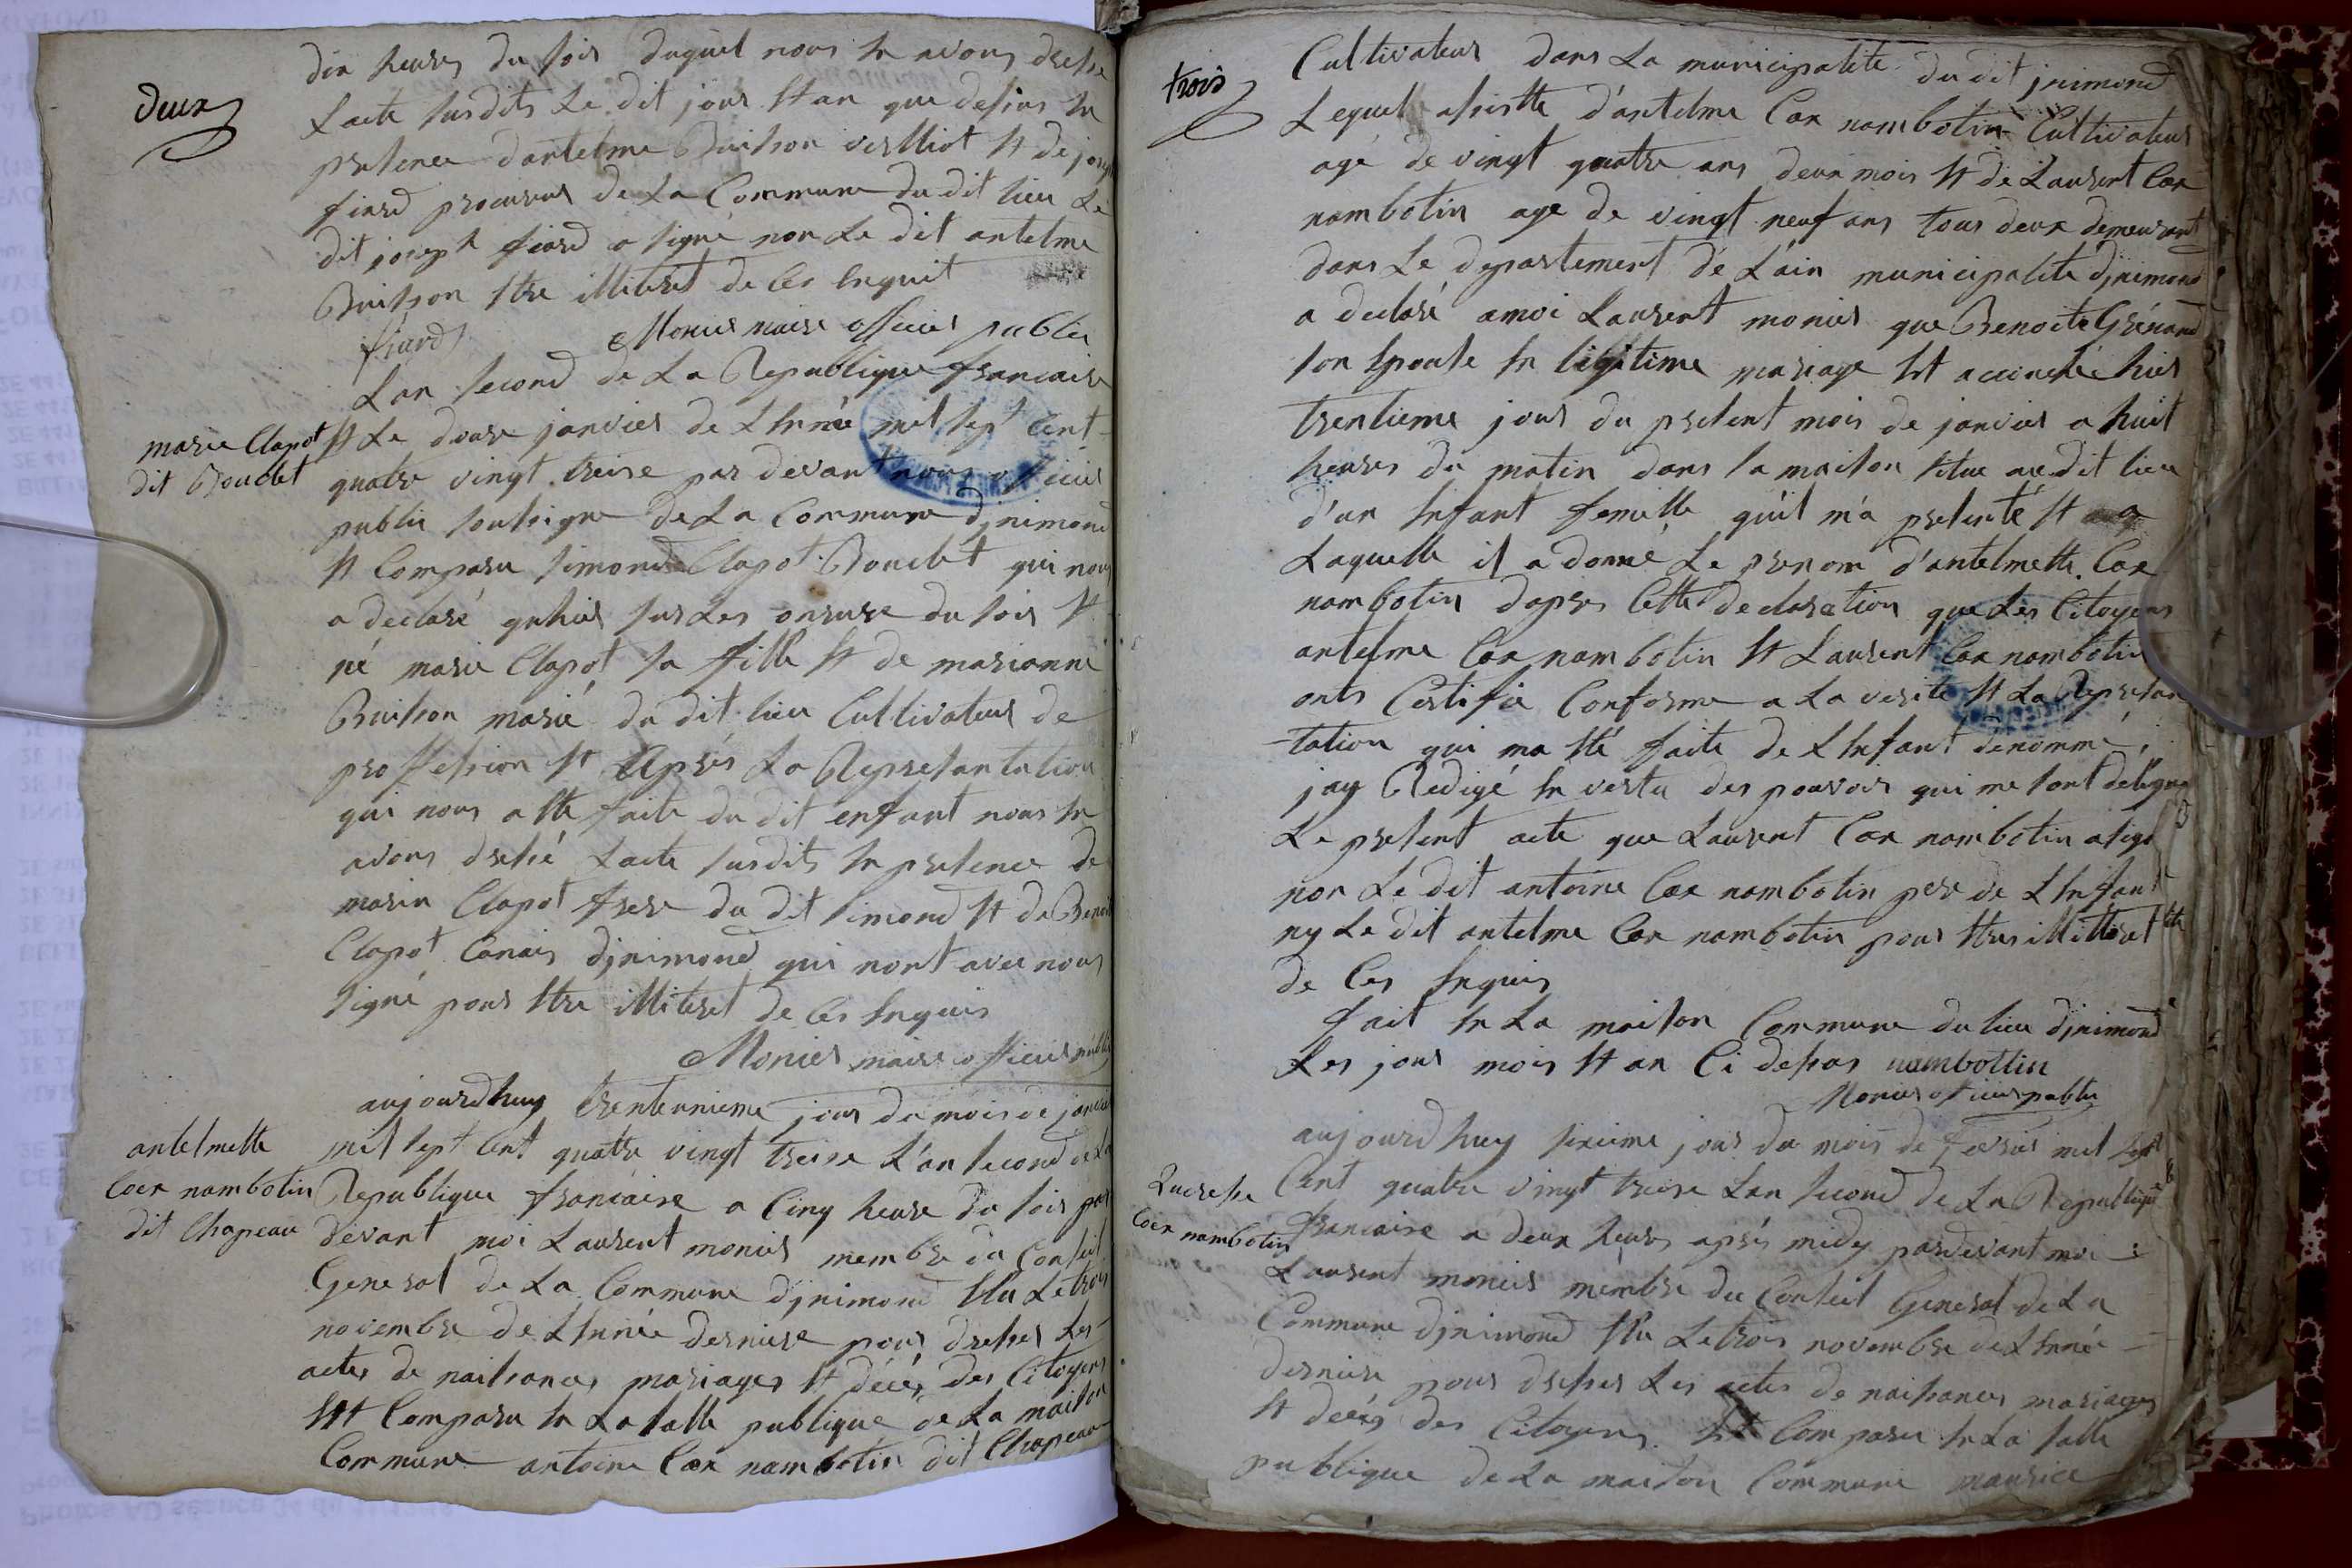 deux
dix heures du soir duquel nous en avons dressé
Lacte susdits Le dit jour et an que dessus en
presence dantelme Buisson verlliot et de joseph
fiard procureur de La Commune du dit lieu Le
dit joseph fiard a signé non Le dit antelme
Buisson etre illiteret de ces enquit
fiard Monier maire officier public
Lan second de La Republique francaise
marie Clapot
dit Bouclet
et Le douze janvier de Lennée mil sept Cent
quatre vingt treise par devant nous officier
public soussigne de La Commune djnimond
et Comparu simond Clapot Bouclet qui nous
a declaré quhier sur Les onzeure du soir et
né marie Clapot sa fille et de marianne
Buisson marié du dit lieu Cultivateur de
proffession et Après La Represantation
qui nous a ete faite du dit enfant nous en
avons dressé Lacte susdits en presence de
marin Clapot frere du dit simond et de Benoit
Clapot Canais djnimond qui nont avec nous
signé pour etre illiteret de ces enquis
Monier maire officier public
antelmette
Coer nambotin
dit Chapeau
aujourdhuy trenteunieme jour du mois de janvier
mil sept Cent quatre vingt treise L'an second de La
Republique francaise a Cinq heure du soir par
devant moi Laurent monier membre du Conseil
General de La Commune djnimond Elu Le trois
novembre de Lennée derniere pour dresser Les
actes de naissances mariages et décés des Citoyens
Est Comparu en La salle publique de La maison
Commune antoine Cor nambotin dit Chapeau
trois
Cultivateur dans La municipalite du dit jnimond
Lequel assistte d'antelme Cor nambotin Cultivateur
agé de vingt quatre ans deux mois et de Laurent Cor
nambotin age de vingt neuf ans tous deux demeurant
dans Le departement de Lain municipalite djnimond
a declaré amoi Laurent monier que Benoite Grénard
son Epouse en ligitime mariage Est accouché hier
trentieme jour du present mois de janvier a huit
heures du matin dans sa maison situe au dit lieu
d'un Enfant femelle qu'il m'a presenté et a
Laquelle il a donné Le prenom d'antelmette Cor
nambotin dapres Cette declaration que Les Citoyens
antelme Cor nambotin et Laurent Cor nambotin
onts Certifie Conforme a La verite et La Represan
-tation qui ma eté faite de Lenfant denommé,
jay Redigé en vertu des pouvoir qui me sont delegué
Le present acte que Laurent Cor nambotin a signé
non Le dit antoine Cor nambotin pere de Lenfant
ny Le dit antelme Cor nambotin pour etres illitteret
de Ces Enquis
fait en La maison Commune du lieu djnimond
Les jour mois et an Ci dessus nambottin
Monier officier public
Lucresse
Coer nambotin
aujourdhuy sixieme jour du mois de fevrier mil sept
Cent quatre vingt treise Lan second de La Republique
francaise a deux heures aprés midy pardevant moi
Laurent monier membre du Conseil General de La
Commune djnimond Elu Le trois novembre de Lennée
derniere pour dresser Les actes de naissances mariages
et decés des Citoyens Est Comparu en La salle
publique de La maison Commune maurice